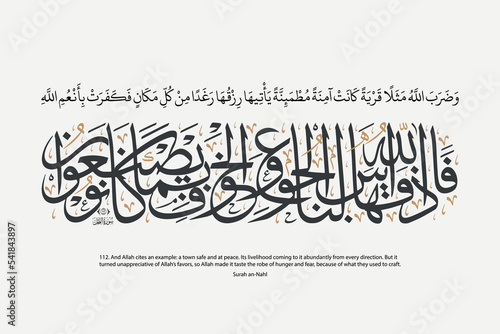 وَضَرَبَ اللَّهُ مَثَلًا قَرْيَةً كَانَتْ آمِنَةً مُطْمَئِنَّةً يَأْتِيهَا رِزْقُهَا رَغَدًا مِنْ كُلِّ مَكَانٍ فَكَفَرَتْ بِأَنْعُمِ اللَّهِ
فَأَذَاقَهَا اللَّهُ لِبَاسَ الْجُوعِ وَالْخَوْفِ بِمَا كَانُوا يَصْنَعُونَ
112. And Allah cites an example: a town safe and at peace. Its livelihood coming to it abundantly from every direction. But it
turned unappreciative of Allah's favors, so Allah made it taste the robe of hunger and fear, because of what they used to craft.
Surah an-Nahl
Adobe Stock | #541843897